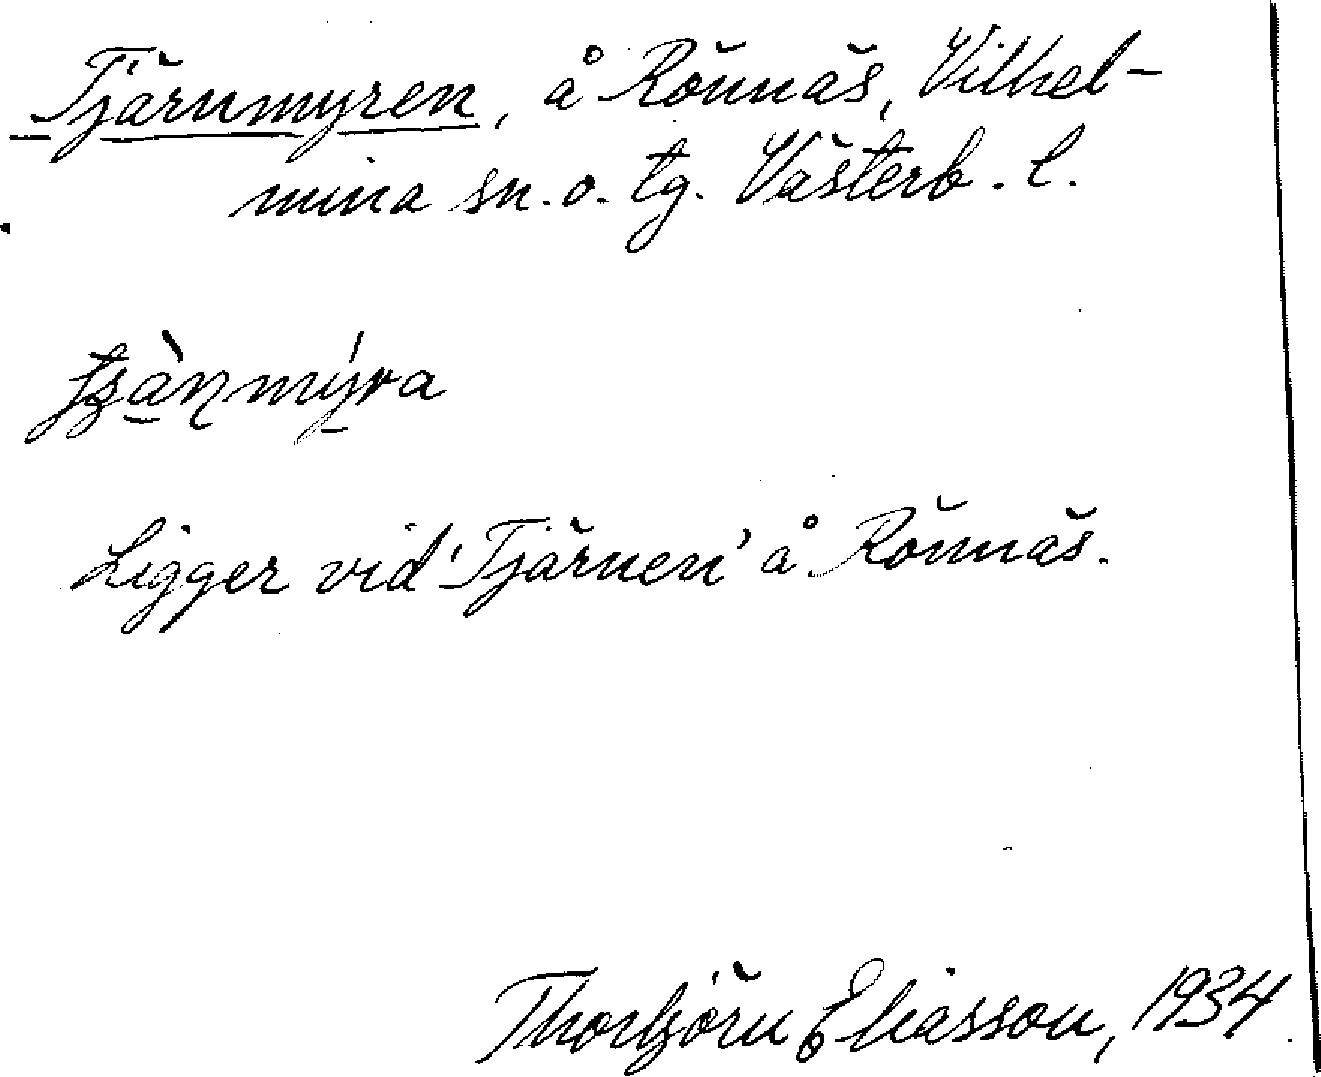 Tjärnmyren, å Rönnäs, Vilhel-
mina sn. o. tg. Västerb. l.
Ligger vid 'Tjärnen' å Rönnäs.
Thorbjörn Eliasson, 1934.